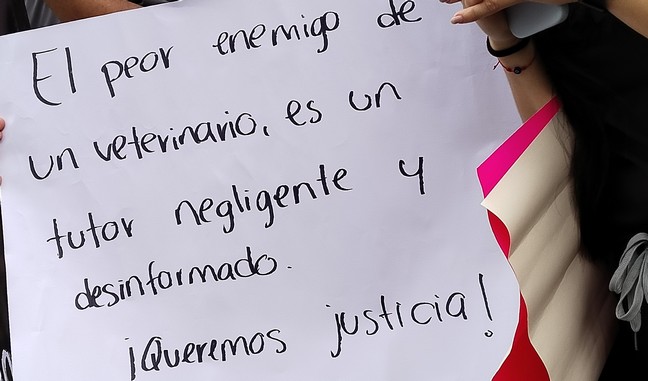 El peor enemigo de
un veterinario, es un
tutor negligente y
desinformado.
¡Queremos justicia!